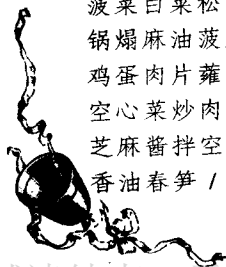 菠菜白菜松
锅爆麻油菠
鸡蛋肉片蕹
空心菜炒肉
芝麻酱拌空
香油春笋 /